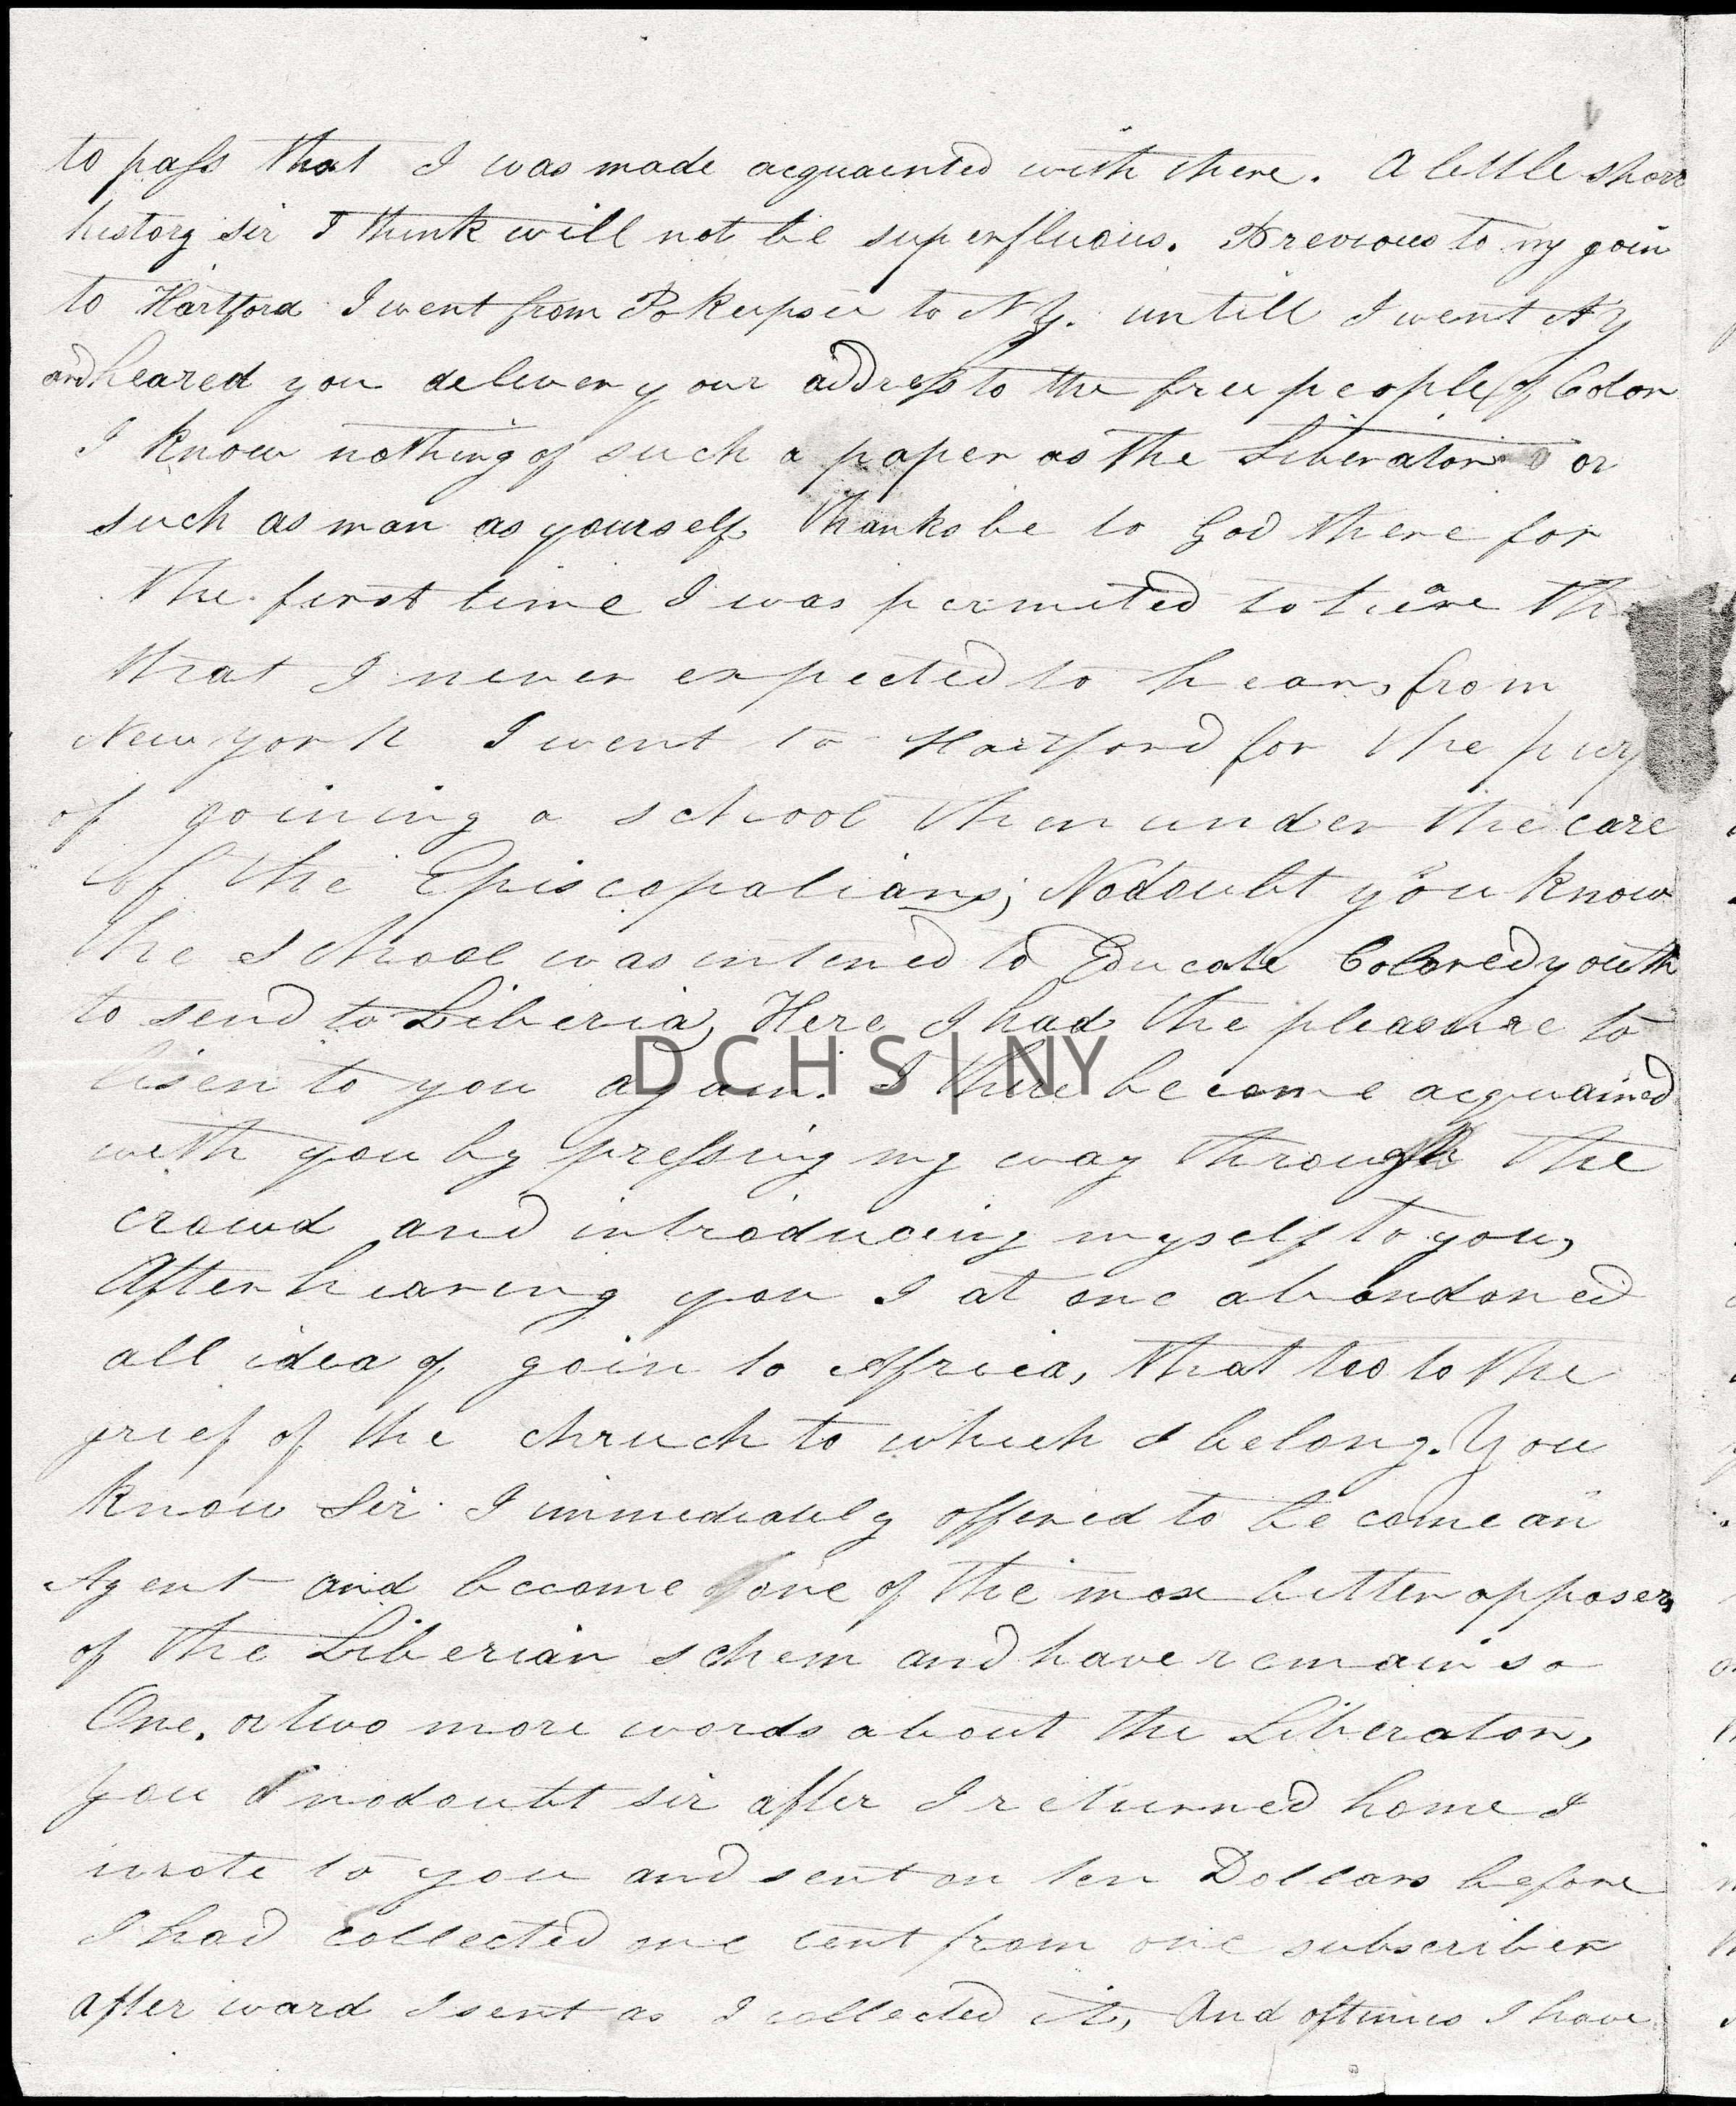 to pass that I was made acquainted with there. A little short
history sir I think will not be superfluous. Previous to my goin
to Hartford I went from Pokeepsie to NY. untill I went NY
and heared you deliver your address to the free people of Color
I know nothing of such a paper as the Liberator or
such as man as yourself Thanks be to God there for
the first time I was permited to heare
that I never expected to hear, from
New york I went to Hartford for the
of goining a school then under the care
of the Episcopalians, No doubt you know
the school was intened to Educate Colored youth
to send to Liberia, Here I had the pleasure to
lisen to you again. I there become acquained
D C H S | NY
with you by pressing my way through the
crowd and introducing myself to you,
After hearing you I at onc abondoned
all idea of goin to Africa, that too to the
grief of the chruch to which I belong. You
know Sir I immediately offered to become an
Agent and become one of the mos bitter opposers
of the Liberian schem and have remain so
One, or two more words about the Liberator,
you nodoubt sir after I returned home I
wrote to you and sent on ten Dollars before
I had collected one cent from one subscriber
after ward I sent as I collected it, And oftimes I have